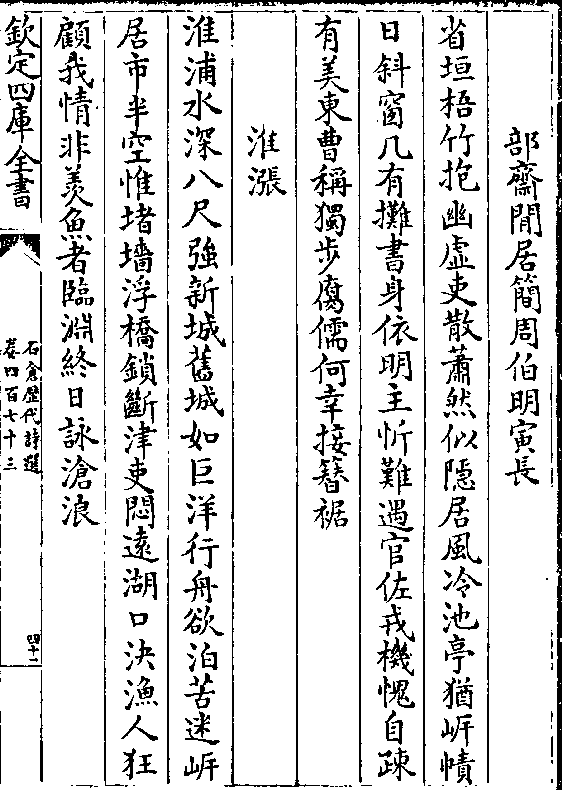 部齋閒居簡周伯明寅長
省垣梧竹抱幽虛吏散蕭然似隱居風冷池亭猶岸幘
日斜窗几有攤書身依明主忻難遇官佐戎機愧自疎
有美東曹稱獨步腐儒何幸接簪裾
淮漲
淮浦水深八尺強新城舊城如巨洋行舟欲泊苦迷岸
居市半空惟堵墻浮橋鎖斷津吏悶遠湖口決漁人狂
顧我情非羨魚者臨淵終日詠滄浪
欽定四庫全書
石倉歷代詩選
卷四百七十三
四十一